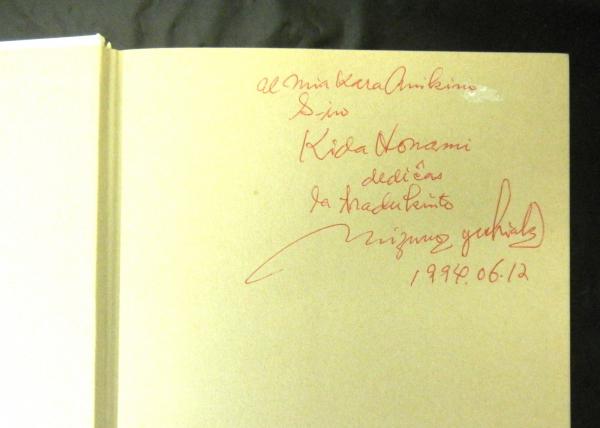 al mia kara Amikino
S-ino
Kida Honami
dediĉas
la tradukinto
Mizuno
1994.06.12